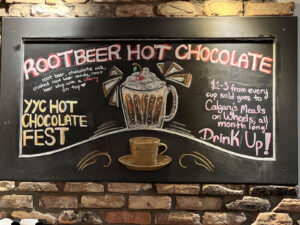 ROOTBEER HOT CHOCOLATE
root beer, chocolate milk,
crushed root beer candy, root
beer whip and a cherry
on top
YYC HOT
CHOCOLATE
FEST
$1-3 from every
cup sold goes to
Calgary's Meals
on Wheels, all
month long!
DRiNK Up!